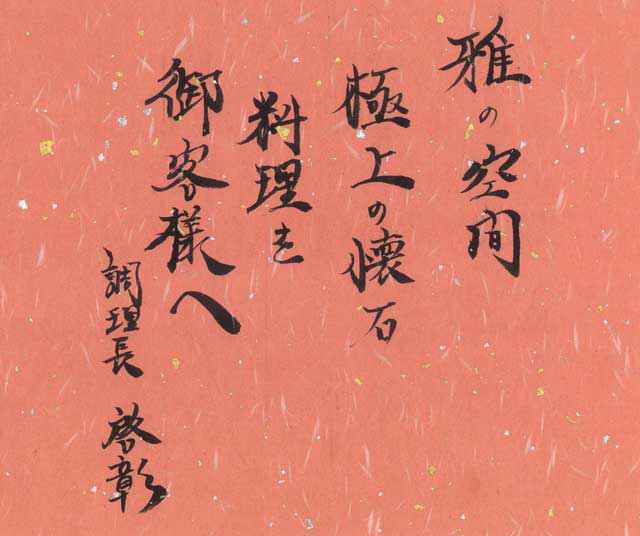 雅の空間
極上の懐石
料理を
御客様へ
調理長 啓彰